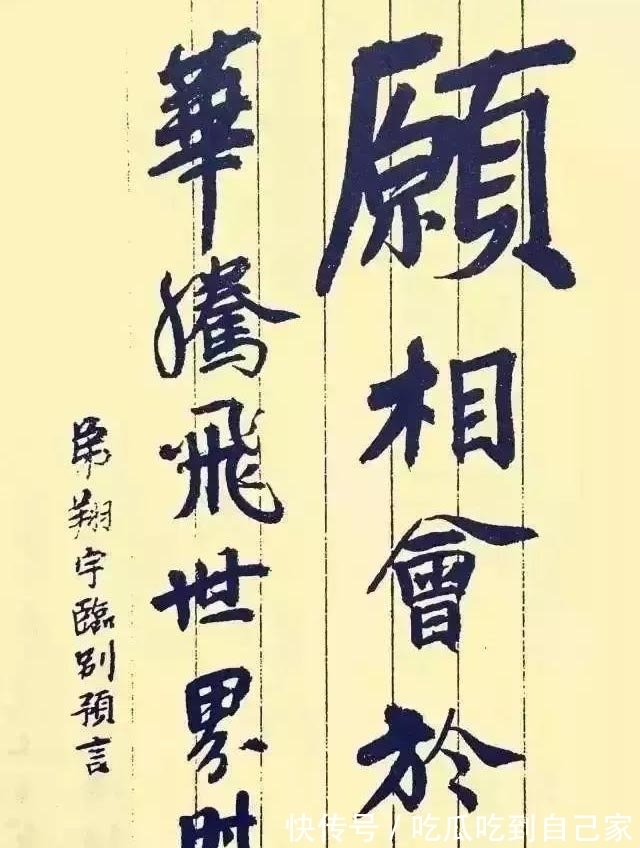 願相會於
華騰飛世界
弟翔宇臨別預言
快传号 / 吃瓜吃到自己家